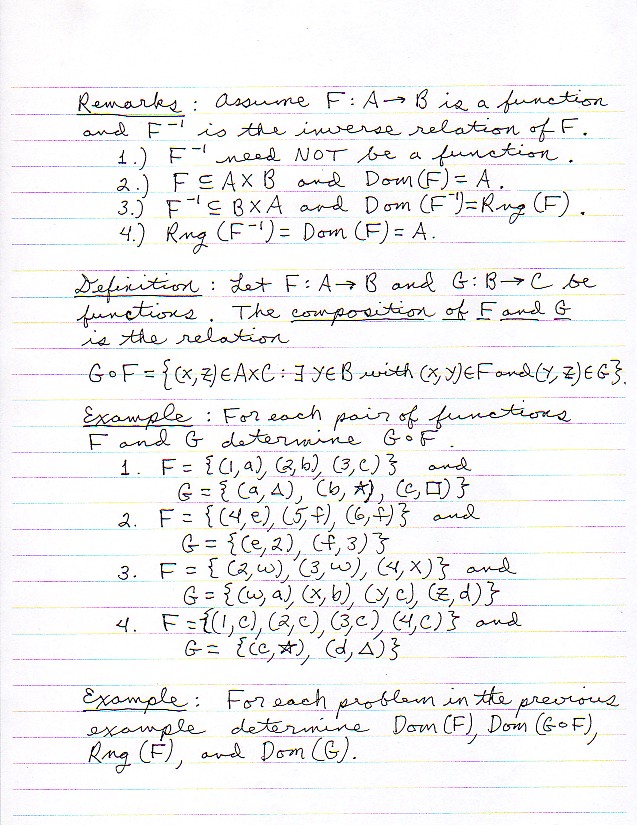 Remarks : Assume F : A → B is a function
and F⁻¹ is the inverse relation of F.
1.) F⁻¹ need NOT be a function.
2.) F ⊆ A×B and Dom(F) = A.
3.) F⁻¹ ⊆ B×A and Dom(F⁻¹) = Rng(F).
4.) Rng(F⁻¹) = Dom(F) = A.
Definition : Let F : A → B and G : B → C be
functions. The composition of F and G
is the relation
G∘F = {(x,z)∈A×C : ∃ y∈B with (x,y)∈F and (y,z)∈G}.
Example : For each pair of functions
F and G determine G∘F.
1. F = {(1,a), (2,b), (3,c)} and
G = {(a,△), (b,☆), (c,□)}
2. F = {(4,e), (5,f), (6,f)} and
G = {(e,2), (f,3)}
3. F = {(2,w), (3,w), (4,x)} and
G = {(w,a), (x,b), (y,c), (z,d)}
4. F = {(1,c), (2,c), (3,c), (4,c)} and
G = {(c,☆), (d,△)}
Example : For each problem in the previous
example determine Dom(F), Dom(G∘F),
Rng(F), and Dom(G).